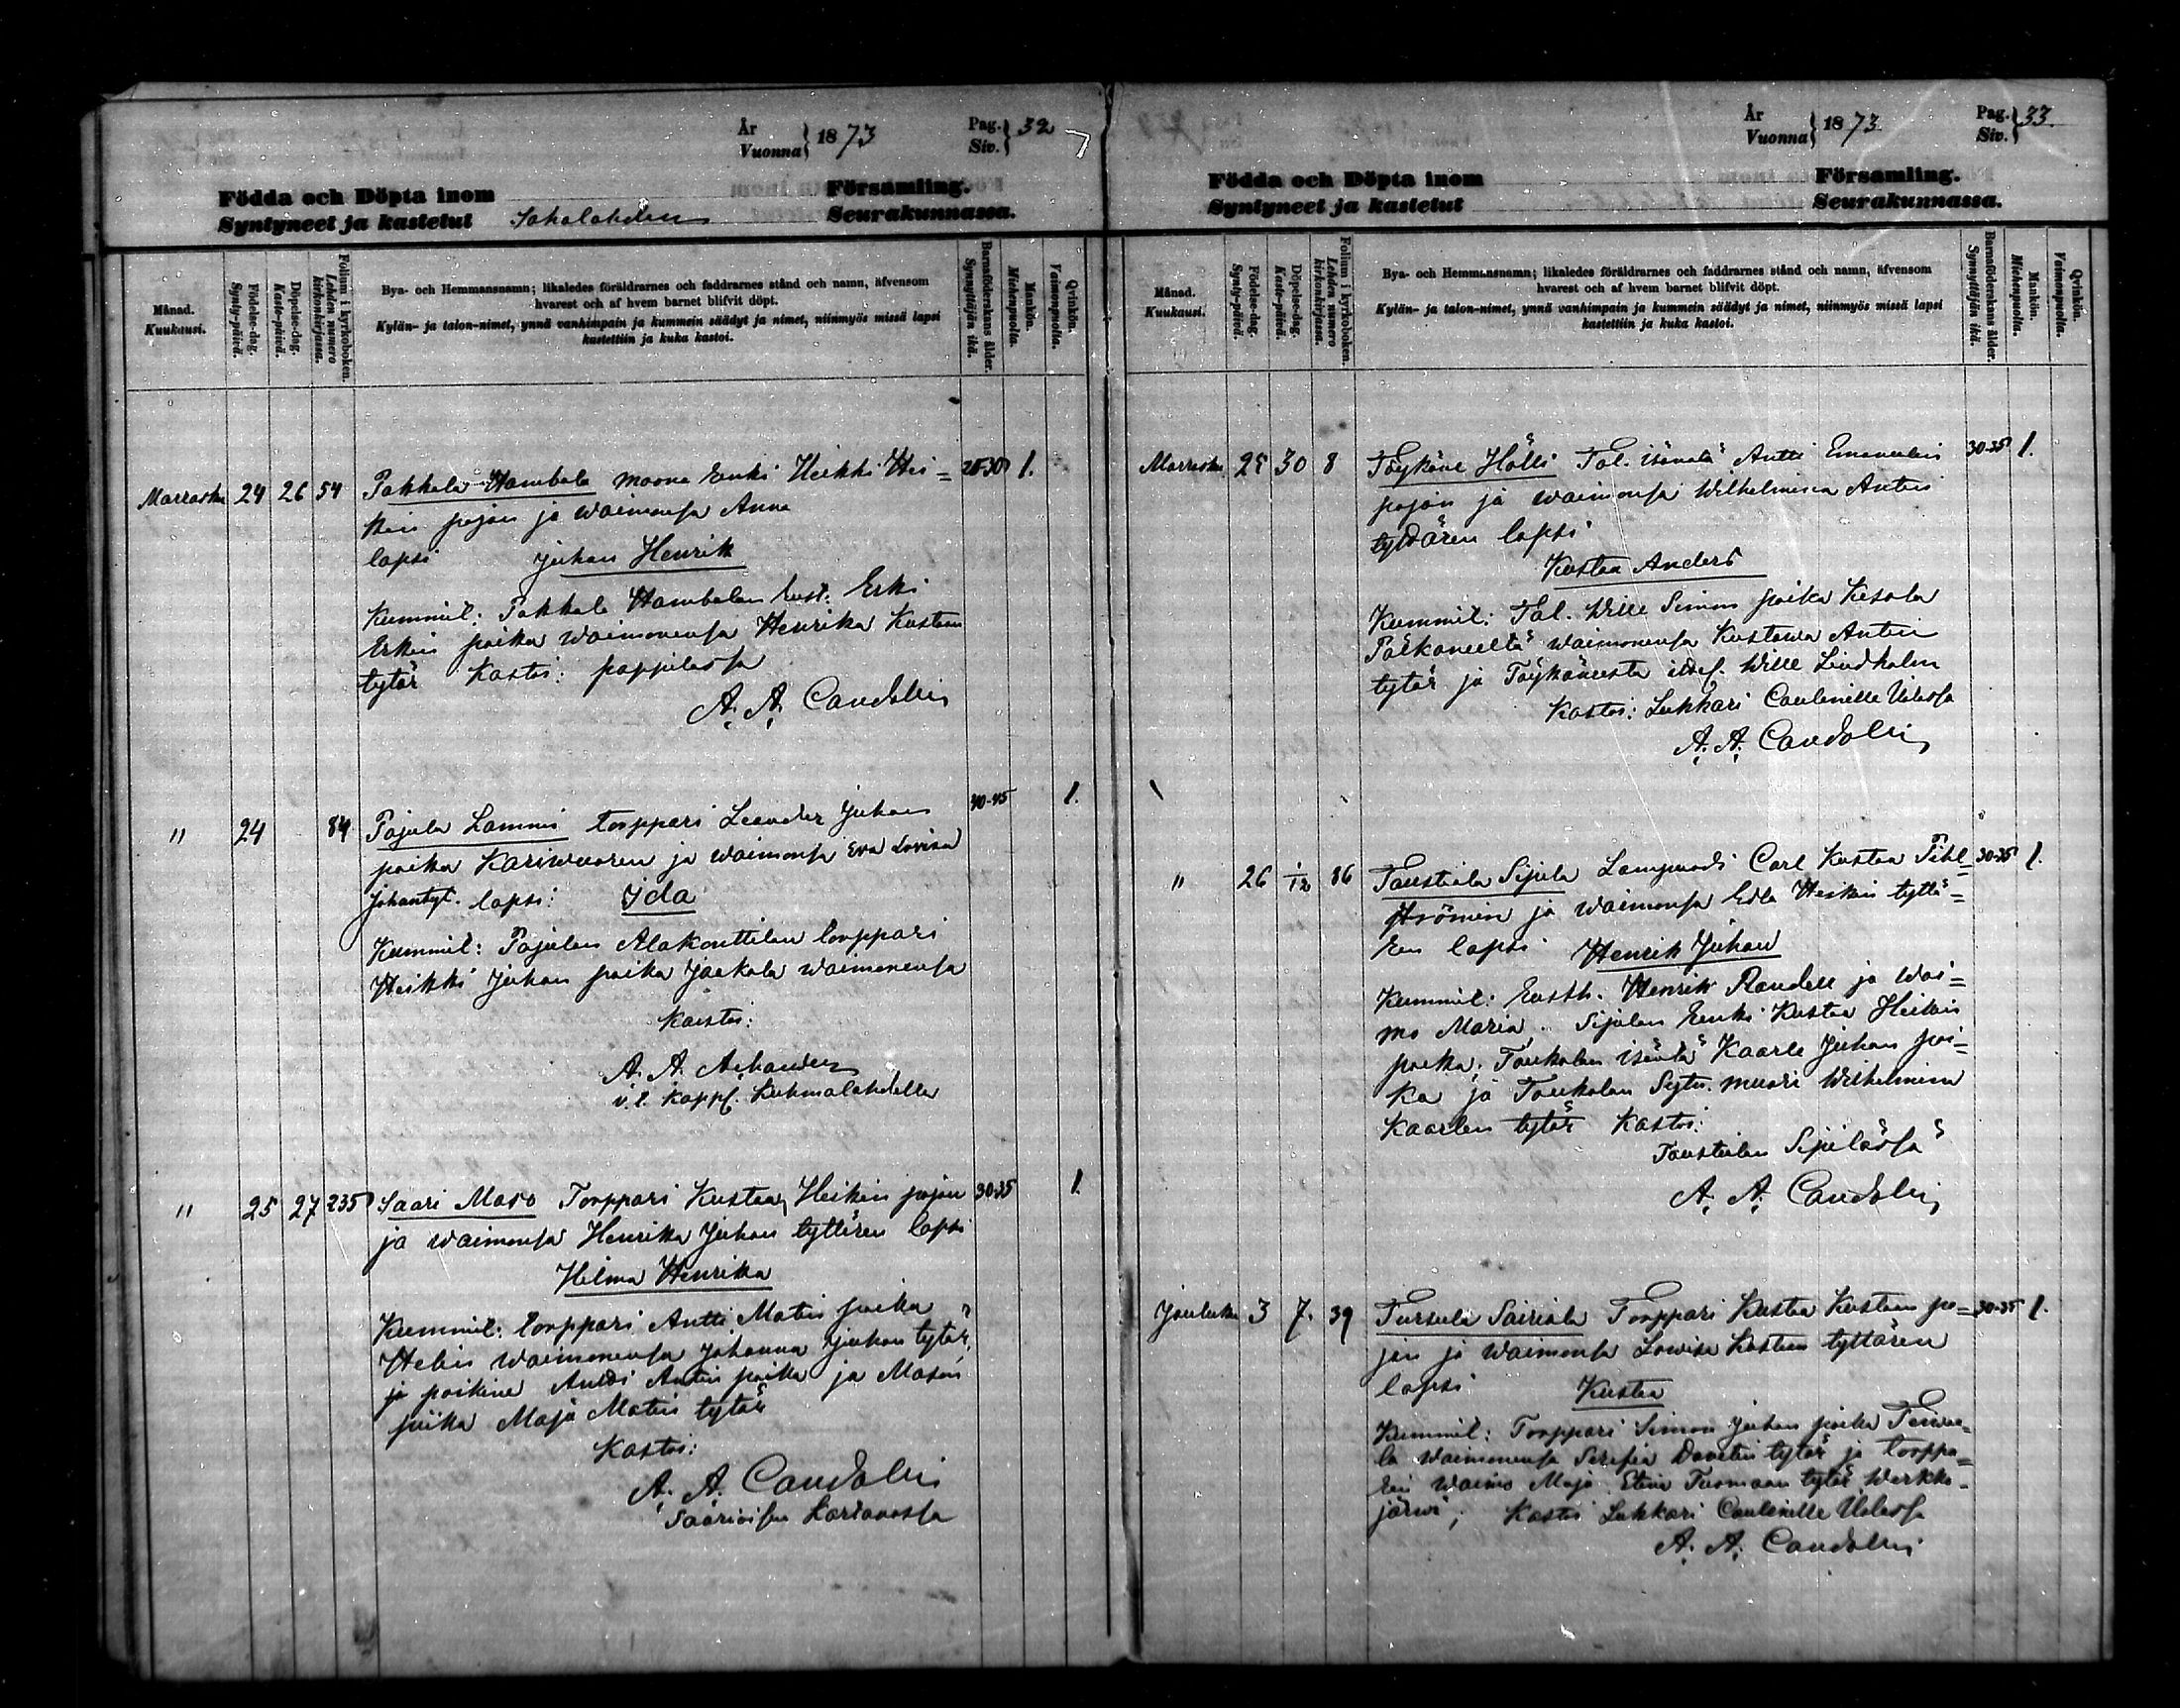 År
Vuonna 1873
Pag.
Siv. 32
Födda och Döpta inom Församling.
Syntyneet ja kastetut Sahalahden Seurakunnassa.
Månad.
Kuukausi.
Födelse-dag.
Synty-päivä.
Döpelse-dag.
Kaste-päivä.
Folium i kyrkoboken.
Lehden numero
kirkonkirjassa.
Bya- och Hemmansnamn; likaledes föräldrarnes och faddrarnes stånd och namn, äfvensom
hvarest och af hvem barnet blifvit döpt.
Kylän- ja talon-nimet, ynnä vanhimpain ja kummein säädyt ja nimet, niinmyös missä lapsi
kastettiin ja kuka kastoi.
Barnaföderskans ålder.
Synnyttäjän ikä.
Mankön.
Miehenpuolta.
Qvinkön.
Vaimonpuolta.
Marrasku 24 26 54 Pakkala Hambala Heikki Hei= 25-30 1.
kin pojan ja waimonsa Anna
lapsi Juhan Henrik
Kummit: Pakkala Hambalan Erki
Erkin poika waimonensa Henrika Kustaan
tytär Kastoi: pappilassa
A. A. Candolin
" 24 84 Pajula Lammi torppari Leander Juhan 40-45 1.
poika Kariwuoren ja waimonsa Eva Lovisa
Johantyt. lapsi: Ida
Kummit: Pajulan Alakouttilan torppari
Heikki Juhan poika Jaakola waimonensa
Kastoi:
A. A.
v. t. kappl. Kuhmalahdella
" 25 27 235 Saari Maso Torppari Kustaa Heikin pojan 30-35 1.
ja waimonsa Henrika Juhan tyttären lapsi
Hilma Henrika
Kummit: torppari Antti Matin poika
waimonensa Johanna Juhan tytär,
ja poikine Antti Antin poika ja Mason
piika Maja Matin tytär
Kastoi:
A. A. Candolin
Saarioisten Kartanossa
År
Vuonna 1873
Pag.
Siv. 33.
Födda och Döpta inom Församling.
Syntyneet ja kastetut Seurakunnassa.
Månad.
Kuukausi.
Födelse-dag.
Synty-päivä.
Döpelse-dag.
Kaste-päivä.
Folium i kyrkoboken.
Lehden numero
kirkonkirjassa.
Bya- och Hemmansnamn; likaledes föräldrarnes och faddrarnes stånd och namn, äfvensom
hvarest och af hvem barnet blifvit döpt.
Kylän- ja talon-nimet, ynnä vanhimpain ja kummein säädyt ja nimet, niinmyös missä lapsi
kastettiin ja kuka kastoi.
Barnaföderskans ålder.
Synnyttäjän ikä.
Mankön.
Miehenpuolta.
Qvinkön.
Vaimonpuolta.
Marrasku 25 30 8 Töykäne Hölli Tal. isäntä Antti Emanuelin 30-35 1.
pojan ja waimonsa Wilhelmina Antin
tyttären lapsi
Kustaa Anders
Kummit: Tal. Wille Simon poika Kesola
waimonensa Kustawa Antin
tytär ja Töykäneestä Wille Lindholm
Kastoi: Lukkari
A. A. Candolin
" 26 1/12 86 Taustiala Sipila Carl Kustaa Pihl= 30-35 1.
strömin ja waimonsa Edla Heikin tyttä=
ren lapsi Henrik Juhan
Kummit: Henrik Randell ja wai=
mo Maria, Sipilan Renki Kustaa Heikin
poika, Toukolan isäntä Kaarle Juhan poi=
ka ja Toukolan muori Wilhelmina
Kaarlen tytär Kastoi:
Taustialan Sipilässä
A. A. Candolin
Jouluku 3 7. 39 Tursula Sairiala Torppari Kustaa Kustaan po= 30-35 1.
jan ja waimonsa Lowisa Kustaan tyttären
lapsi Kustaa
Kummit: Torppari Simon Juhan poika
la waimonensa Serafia tytär ja torppa=
rin waimo Maja Stina Tuomaan tytär Werkko=
järwi; Kastoi Lukkari
A. A. Candolin